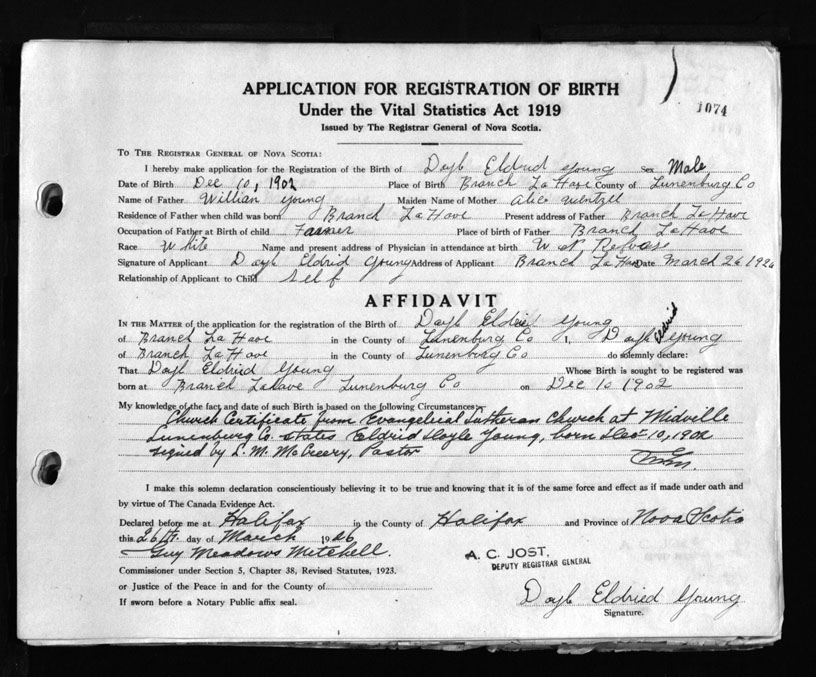 APPLICATION FOR REGISTRATION OF BIRTH
Under the Vital Statistics Act 1919
1074
Issued by The Registrar General of Nova Scotia.
TO THE REGISTRAR GENERAL OF NOVA SCOTIA:
I hereby make application for the Registration of the Birth of Doyle Eldrid Young Sex Male
Date of Birth Dec 10, 1902 Place of Birth Branch La Have County of Lunenburg Co
Name of Father William Young Maiden Name of Mother Alice
Residence of Father when child was born Branch La Have Present address of Father Branch La Have
Occupation of Father at Birth of child Farmer Place of birth of Father Branch La Have
Race White Name and present address of Physician in attendance at birth W N
Signature of Applicant Doyle Eldrid Young Address of Applicant Branch La Have Date March 26 1926
Relationship of Applicant to Child self
AFFIDAVIT
IN THE MATTER of the application for the registration of the Birth of Doyle Eldried Young
of Branch La Have in the County of Lunenburg Co I, Doyle Eldrid Young
of Branch La Have in the County of Lunenburg Co do solemnly declare:
That Doyle Eldried Young Whose Birth is sought to be registered was
born at Branch LaHave Lunenburg Co on Dec 10 1902
My knowledge of the fact and date of such Birth is based on the following Circumstances:
Church Certificate from Evangelical Lutheran Church at Midville
Lunenburg Co. states Eldrid Doyle Young, born Dec 10, 1902
signed by L. M. McCreery, Pastor
I make this solemn declaration conscientiously believing it to be true and knowing that it is of the same force and effect as if made under oath and
by virtue of The Canada Evidence Act.
Declared before me at Halifax in the County of Halifax and Province of Nova Scotia
this 26th day of March 1926
Guy Meadows Mitchell.
A. C. JOST,
DEPUTY REGISTRAR GENERAL
Commissioner under Section 5, Chapter 38, Revised Statutes, 1923.
or Justice of the Peace in and for the County of
If sworn before a Notary Public affix seal.
Doyle Eldried Young
Signature.